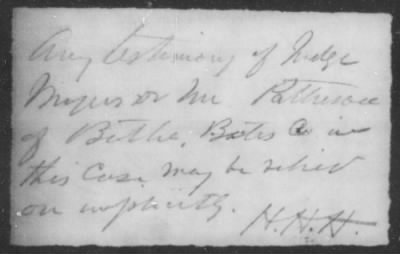 Any testimony of Judge
Myers or Mr Patterson
of Butler, Bates Co in
this case may be relied
on implicitly.
H.H.H.